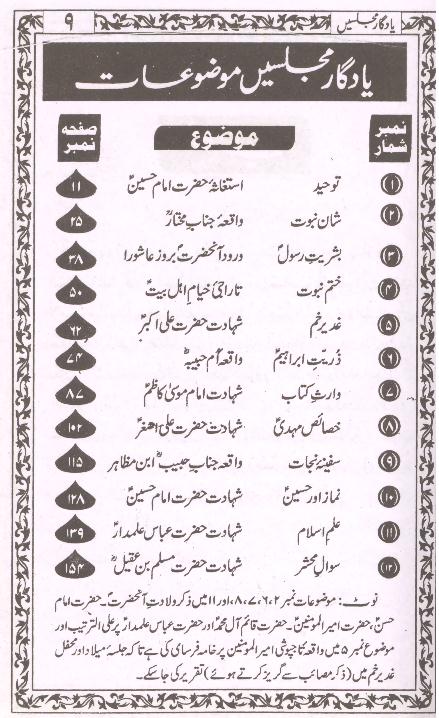 یادگار مجلسیں ۹
یادگار مجلسیں موضوعات
نمبر شمار موضوع صفحہ نمبر
۱ توحید استغاثۂ حضرت امام حسینؑ ۱۱
۲ شان نبوت واقعۂ جناب مختارؒ ۲۵
۳ بشریتِ رسولؐ ورود آنحضرتؐ بروز عاشورا ۳۸
۴ ختم نبوت تاراجیٔ خیامِ اہل بیتؑ ۵۰
۵ غدیر خم شہادت حضرت علی اکبرؑ ۶۲
۶ ذُریّتِ ابراہیمؑ واقعہ اُم حبیبہؓ ۷۴
۷ وارثِ کتاب شہادت امام موسیٰ کاظمؑ ۸۷
۸ خصائص مہدیؑ شہادت حضرت علی اصغرؑ ۱۰۲
۹ سفینۂ نجات واقعہ جناب حبیبؓ ابن مظاہر ۱۱۵
۱۰ نماز اور حسینؑ شہادت حضرت امام حسینؑ ۱۲۸
۱۱ علمِ اسلام شہادت حضرت عباس علمدارؑ ۱۳۹
۱۲ سوالِ محشر شہادت حضرت مسلم بن عقیلؓ ۱۵۴
نوٹ: موضوعات نمبر ۲، ۶، ۷، ۸، اور ۱۱ میں ذکر ولادتِ آنحضرتؐ۔ حضرت امام
حسنؑ، حضرت امیر المومنینؑ۔ حضرت قائم آل محمدؑ اور حضرت عباس علمدارؑ پر علی الترتیب اور
موضوع نمبر ۵ میں واقعۂ تاجپوشی امیر المومنینؑ پر خامہ فرسائی کی ہے تاکہ جلسۂ میلاد اور محفل
غدیر خم میں (ذکر مصائب سے گریز کرتے ہوئے) تقریر کی جا سکے۔